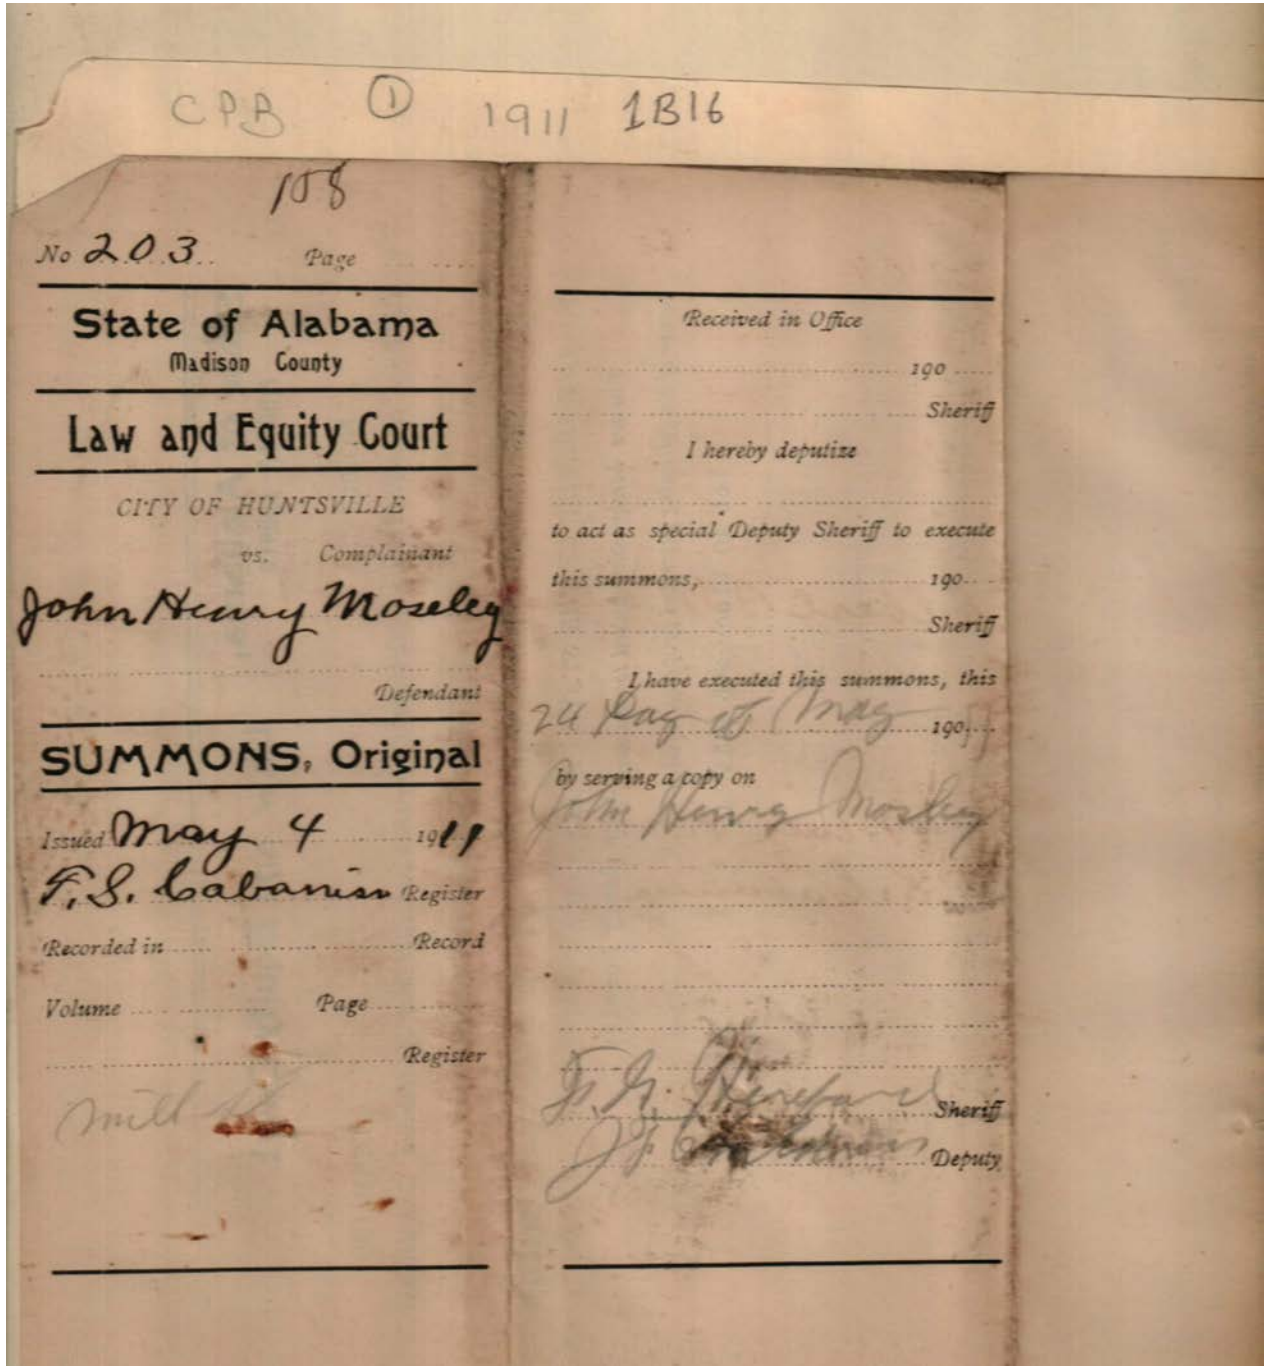 CPB ① 1911 1B16
108
No 203 Page
State of Alabama
Madison County
Law and Equity Court
CITY OF HUNTSVILLE
vs. Complainant
John Henry Moseley
Defendant
SUMMONS, Original
Issued May 4 1911
F. S. Cabaniss Register
Recorded in Record
Volume Page
Register
Mill
Received in Office
190
Sheriff
I hereby deputize
to act as special Deputy Sheriff to execute
this summons, 190
Sheriff
I have executed this summons, this
24 Day of May 190
by serving a copy on
John Henry Mosley
Hereford Sheriff
Deputy